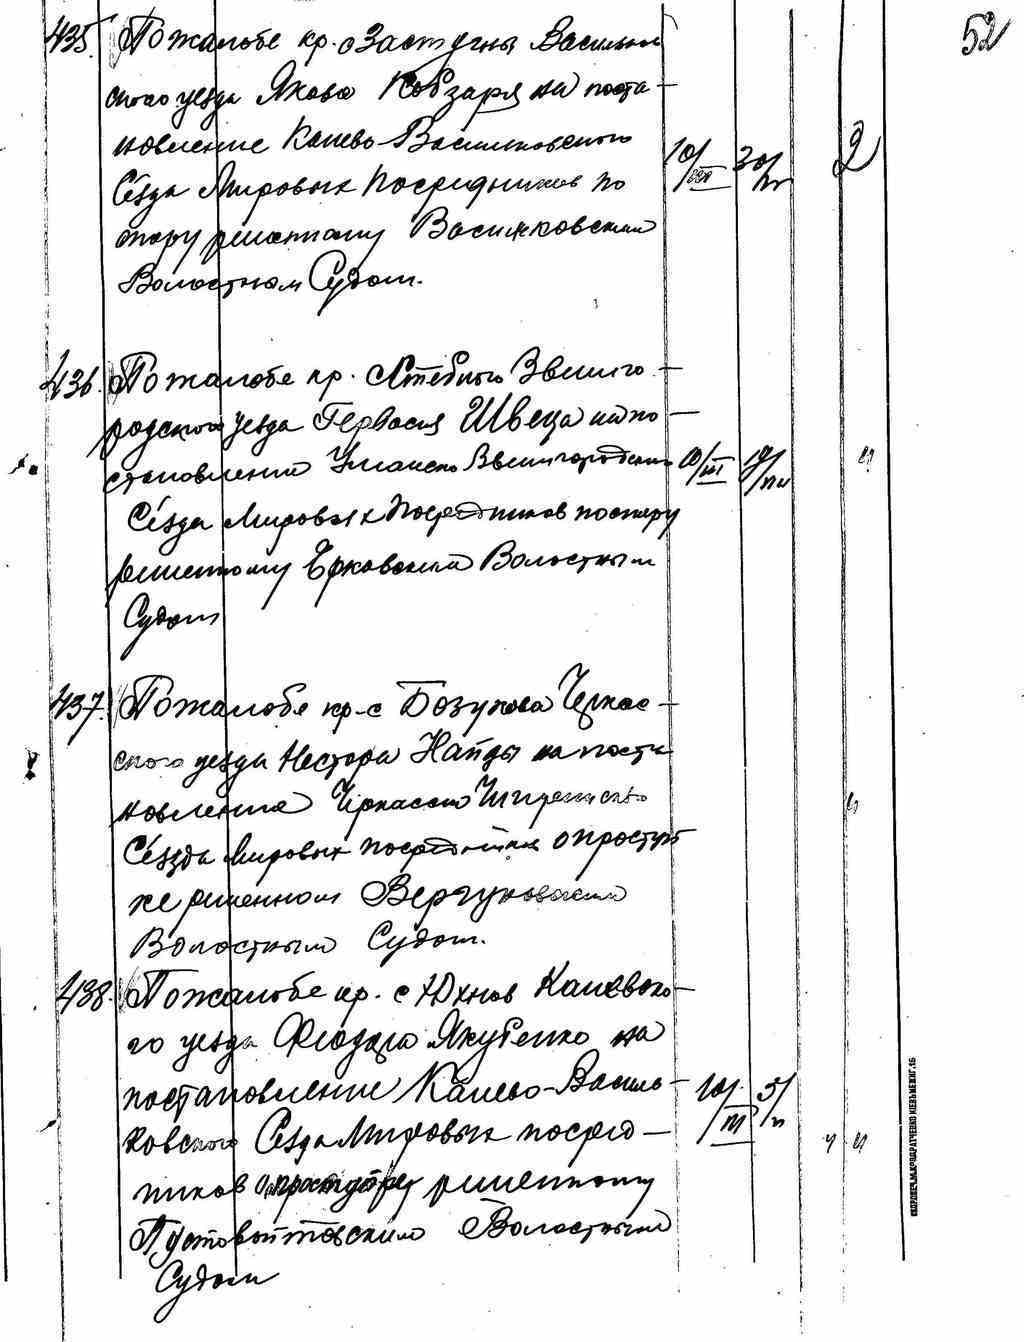 52
435. По жалобе кр. с Застугны Василь
ского уезда Якова Кобзаря на поста-
новление Канево-Васильковского
Съезда Мировых Посредников по
спору решенному Васильковским
Волостном Судом.
10/III 30/IV 2
436. По жалобе кр. Звениго-
родского уезда Гервасия Швеца на по-
становление Уманско Звенигородского
Съезда Мировых Посредников по спору
решенному Ерковским Волостным
Судом
10/III
437. По жалобе кр. с Черкас-
ского уезда Нестора Найды на поста
новление Черкасско Чигиринского
Съезда Мировых посредников о проступ
ке решенном Вергуновским
Волостным Судом.
438. По жалобе кр. с Юхнов Каневско-
го уезда Феодора Якубенко на
постановление Канево-Василь-
ковского Съезда Мировых посред-
ников о проступке решенному
Пустовойтовским Волостным
Судом
10/III